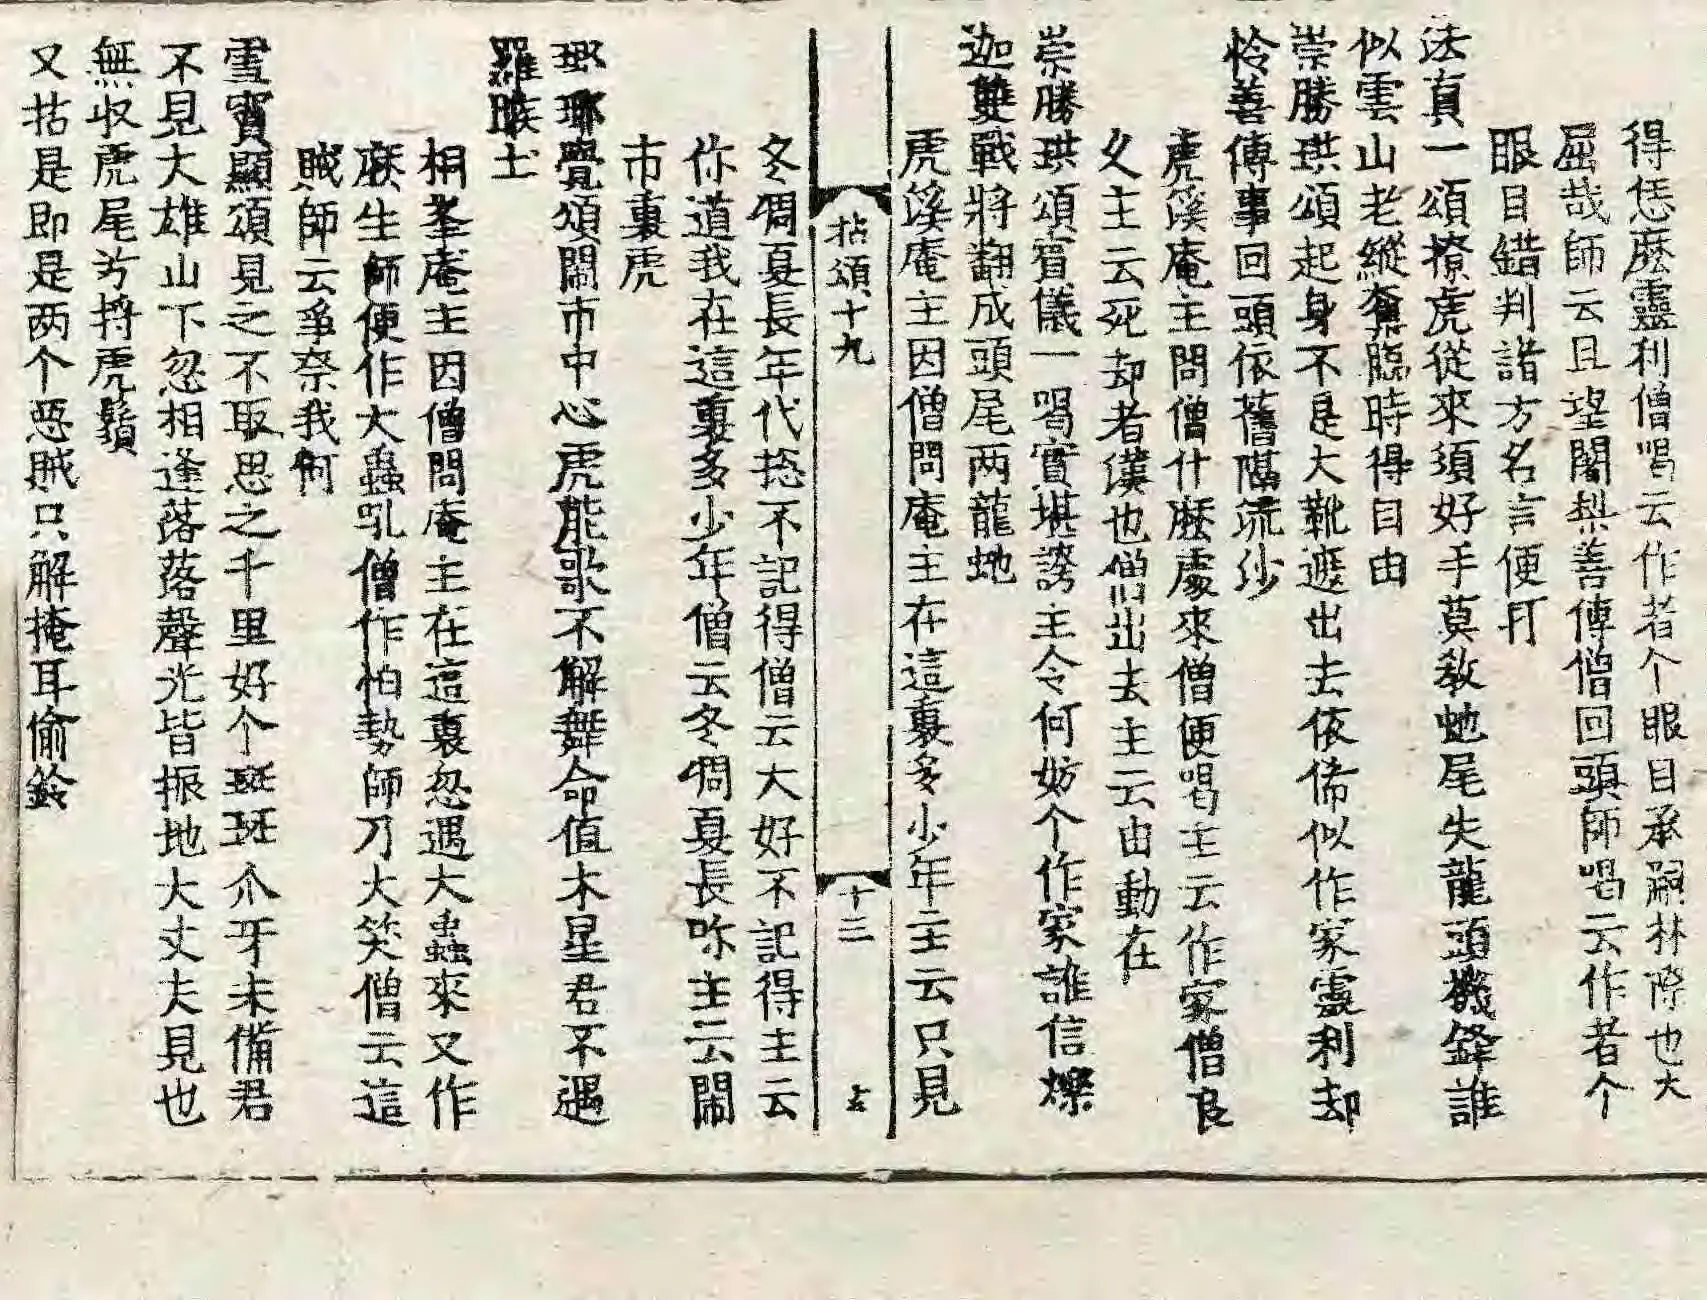 得恁麽靈利僧喝云作者个眼目承嗣林際也大
屈哉師云且望闍梨善傳僧回頭師喝云作者个
眼目錯判諸方名言便打
法真一頌撩虎從來須好手莫教虵尾失龍頭機鋒誰
似雲山老縱奪臨時得自由
崇勝珙頌起身不是大靴遮出去依俙似作家靈利却
怜善傳事回頭依舊隔流沙
虎溪庵主問僧什麽處來僧便喝主云作家僧良
久主云死却者漢也僧出去主云由動在
崇勝珙頌賓儀一喝實堪誇主令何妨个作家誰信爍
迦雙戰將翻成頭尾两龍虵
虎溪庵主因僧問庵主在這裏多少年主云只見
拈頌十九
十二
冬凋夏長年代捴不記得僧云大好不記得主云
你道我在這裏多少年僧云冬凋夏長你主云鬧
市裏虎
瑯瑘覺頌鬧市中心虎能歌不解舞命值木星君不遇
羅睺土
桐峯庵主因僧問庵主在這裏忽遇大蟲來又作
麽生師便作大蟲吼僧作怕勢師乃大笑僧云這
賊師云爭奈我何
雪竇顯頌見之不取思之千里好个斑斑爪牙未備君
不見大雄山下忽相逢落落聲光皆振地大丈夫見也
無収虎尾兮捋虎鬚
又拈是即是两个惡賊只解掩耳偷鈴